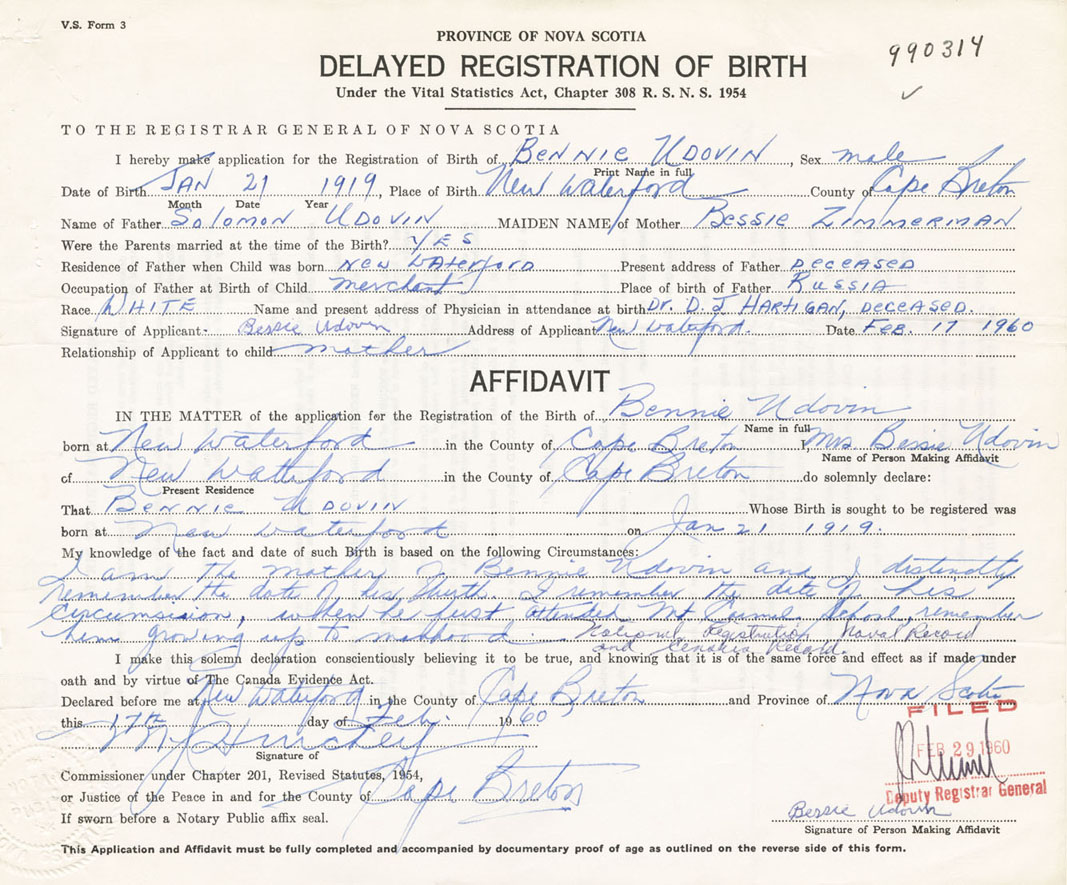 V.S. Form 3
PROVINCE OF NOVA SCOTIA
990314
DELAYED REGISTRATION OF BIRTH
Under the Vital Statistics Act, Chapter 308 R. S. N. S. 1954
TO THE REGISTRAR GENERAL OF NOVA SCOTIA
I hereby make application for the Registration of Birth of BENNIE UDOVIN, Sex male
Print Name in full
Date of Birth JAN 21 1919, Place of Birth New Waterford County of Cape Breton
Month Date Year
Name of Father SOLOMON UDOVIN MAIDEN NAME of Mother BESSIE ZIMMERMAN
Were the Parents married at the time of the Birth? YES
Residence of Father when Child was born NEW WATERFORD Present address of Father DECEASED
Occupation of Father at Birth of Child merchant Place of birth of Father RUSSIA
Race WHITE Name and present address of Physician in attendance at birth Dr. D. J HARTIGAN, DECEASED.
Signature of Applicant Bessie Udovin Address of Applicant New Waterford. Date FEB. 17 1960
Relationship of Applicant to child mother
AFFIDAVIT
IN THE MATTER of the application for the Registration of the Birth of Bennie Udovin
Name in full
born at New Waterford in the County of Cape Breton I, Mrs Bessie Udovin
Name of Person Making Affidavit
of New Watterford in the County of Cape Breton do solemnly declare:
Present Residence
That BENNIE UDOVIN Whose Birth is sought to be registered was
born at New Waterford on Jan 21 1919.
My knowledge of the fact and date of such Birth is based on the following Circumstances:
I am the mother of Bennie Udovin and I distinctly
remember the date of his birth. I remember the date of his
circumsion, when he first attended Mt Carmel School, remember
him growing up to manhood. National Registration Naval Record
and Record.
I make this solemn declaration conscientiously believing it to be true, and knowing that it is of the same force and effect as if made under
oath and by virtue of The Canada Evidence Act.
Declared before me at New Waterford in the County of Cape Breton and Province of Nova Scotia
this 17th day of Feb. 1960
FILED
FEB 29 1960
Deputy Registrar General
Signature of
Commissioner under Chapter 201, Revised Statutes, 1954,
or Justice of the Peace in and for the County of Cape Breton
If sworn before a Notary Public affix seal.
Bessie Udovin
Signature of Person Making Affidavit
This Application and Affidavit must be fully completed and accompanied by documentary proof of age as outlined on the reverse side of this form.